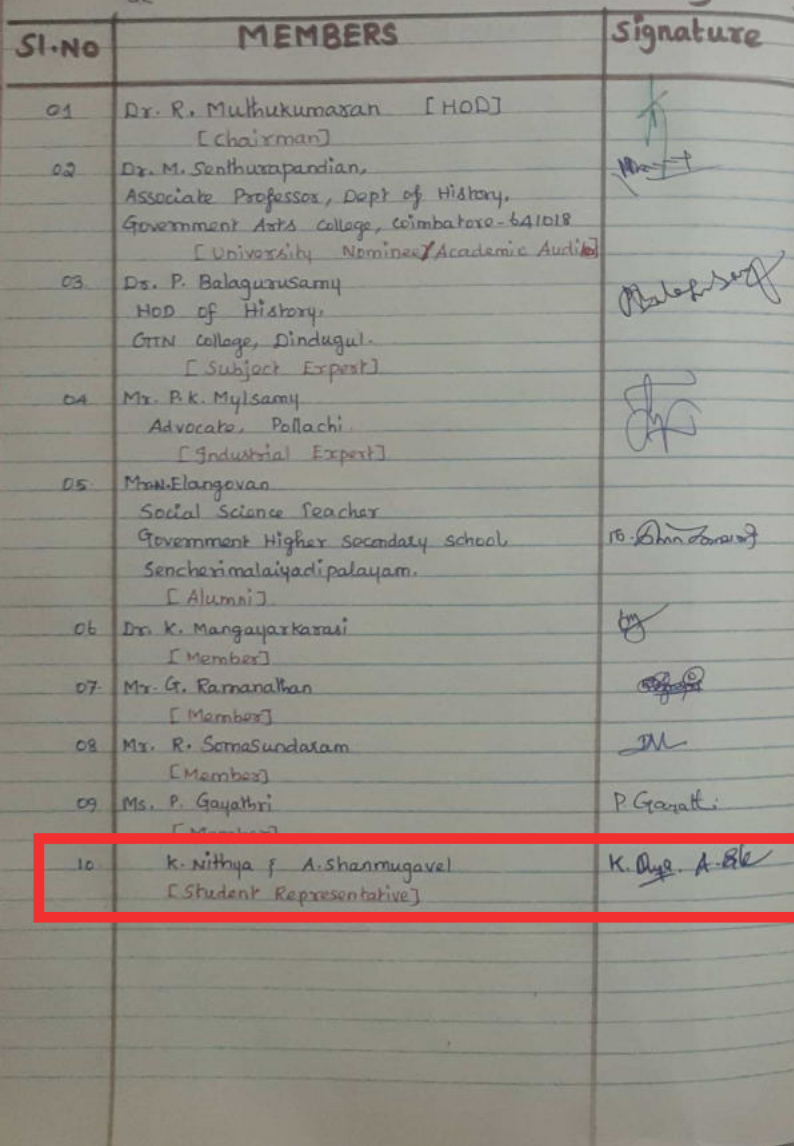 Sl.No MEMBERS Signature
01 Dr. R. Muthukumaran [HOD]
[Chairman]
02 Dr. M. Senthurapandian,
Associate Professor, Dept of History,
Government Arts College, Coimbatore-641018
[University Nominee/Academic Audit]
03 Dr. P. Balagurusamy
HOD of History,
GTN College, Dindugul.
[Subject Expert]
04 Mr. P.K. Mylsamy
Advocate, Pollachi
[Industrial Expert]
05 Mr.N.Elangovan
Social Science Teacher
Government Higher Secondary School,
Sencherimalaiyadipalayam.
[Alumni]
06 Dr. K. Mangayarkarasi
[Member]
07 Mr. G. Ramanathan
[Member]
08 Mr. R. Somasundaram
[Member]
09 Ms. P. Gayathri P. Gayatti
[Member]
10 K. Nithya & A. Shanmugavel K. A.
[Student Representative]